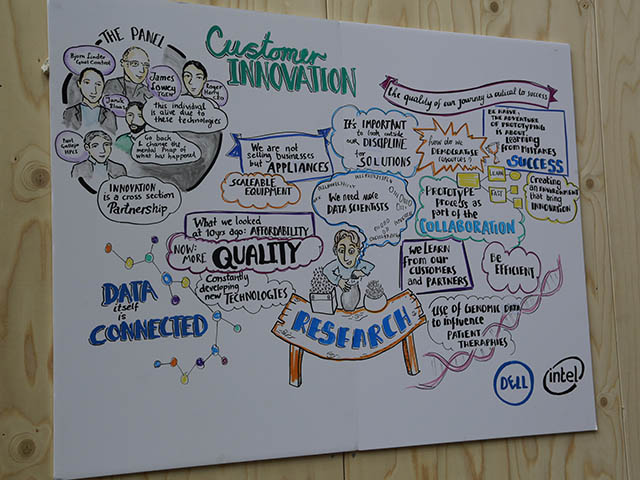 THE PANEL
Customer
INNOVATION
James
Lowey
TGEN
Roger
This individual
is alive due to
these technologies
Go back
& change the
mental map of
what has happened
HPCS
INNOVATION
is a cross section
Partnership
the quality of our journey is critical to success
We are not
selling businesses
but APPLIANCES
SCALEABLE
EQUIPMENT
It's IMPORTANT
to look outside
our DISCIPLINE
for
SOLUTIONS
how do we
DEMOCRATISE
resources?
BE BRAVE.
THE ADVENTURE
OF PROTOTYPING
IS ABOUT
LEARNING
FROM MISTAKES
SUCCESS
LEARN
FAST
Creating
an ENVIRONMENT
that brings
INNOVATION
We need more
DATA SCIENTISTS
PROTOTYPE
process as
part of the
COLLABORATION
What we looked
at 10yrs ago: AFFORDABILITY
NOW:
MORE QUALITY
Constantly
developing
new TECHNOLOGIES
We LEARN
from our
CUSTOMERS
and PARTNERS
Be
EFFICIENT.
DATA
itself
is
CONNECTED
RESEARCH
Use of GENOMIC DATA
to influence
PATIENT
THERAPIES
DELL
intel